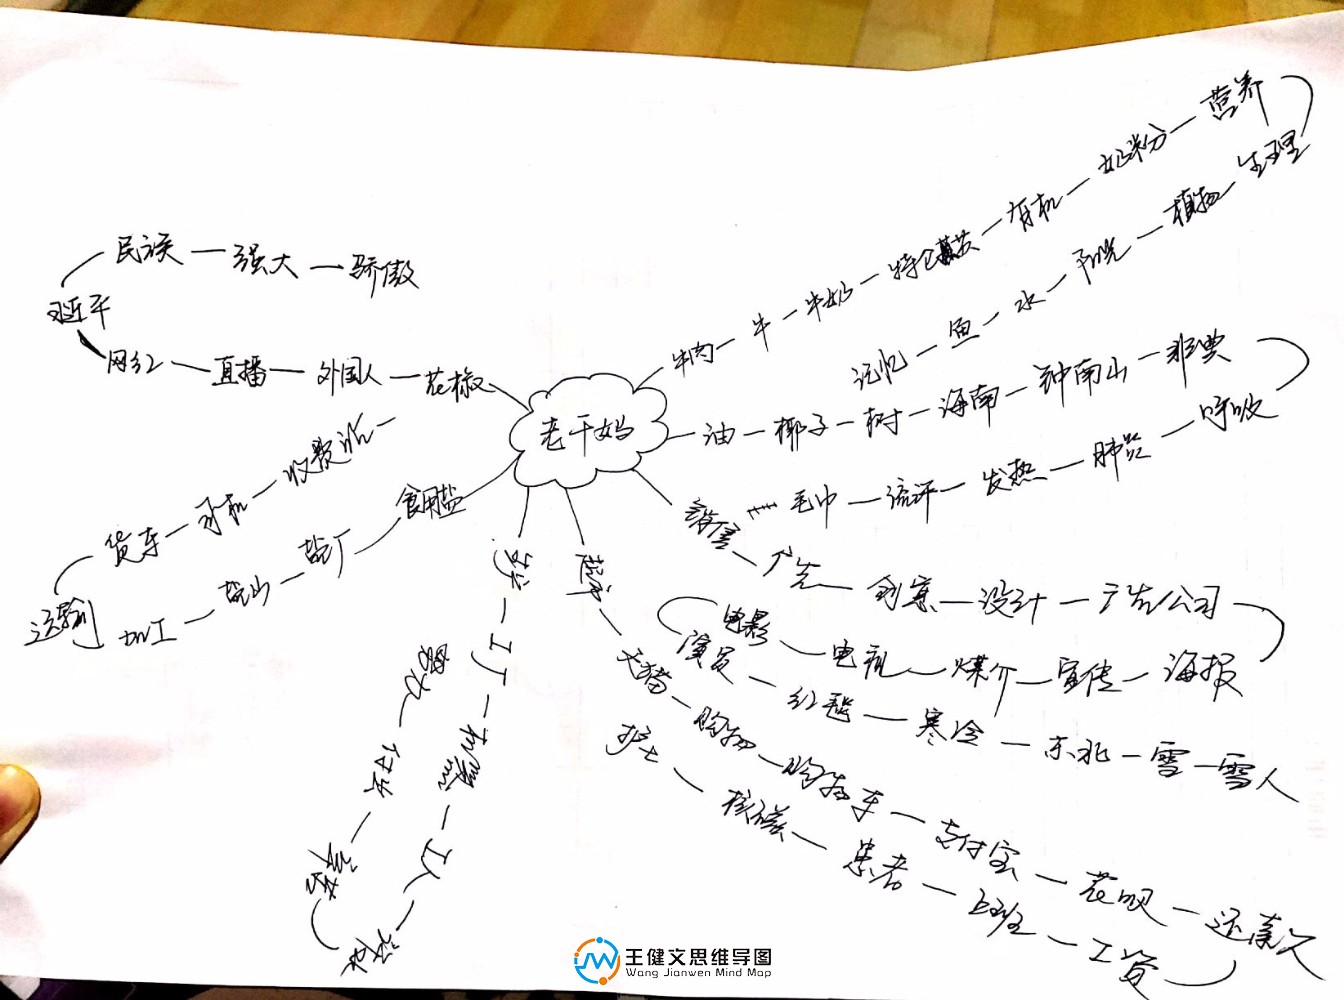 老干妈
牛肉 牛 牛奶 特仑苏 有机 奶粉 营养
生理 植物 阳光 水 鱼 记忆
油 椰子 树 海南 钟南山 非典
呼吸 肺炎 发热 流汗 毛巾
广告 创意 设计 广告公司
海报 宣传 媒介 电视 电影
演员 红毯 寒冷 东北 雪 雪人
超市 天猫 购物 购物车 支付宝 花呗 还款
工资 上班 患者 核磁 护士
工厂 机器 工人
食用盐 盐厂 盐山 加工
运输 货车 司机 收费站
花椒 外国人 直播 网红
习近平
民族 强大 骄傲
王健文思维导图
Wang Jianwen Mind Map